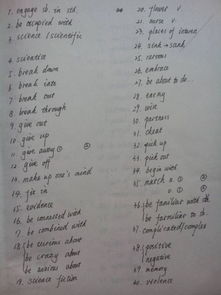 1. engage sb. in sth.
2. be occupied with
3. science / scientific
4. scientist
5. break down
6. break into
7. break out
8. break through
9. give out
10. give up
11. give away ① ②
12. give off
14. make up one's mind
15. evidence
16. be connected with
17. be combined with
18. be curious about
be crazy about
be anxious about
19. science fiction
20. flower v.
21. nurse v.
23. places of interest
24. sink → sank
25. nervous
26. embrace
27. be about to do...
28. enemy
29. wire
30. partners
31. cheat
32. pick up
33. pick out
34. begin with
35. match n. ① ②
v. ① ②
46. be familiar with sb
be familiar to sb.
47. complicated/complex
48. positive
negative
49. memory
50. violence